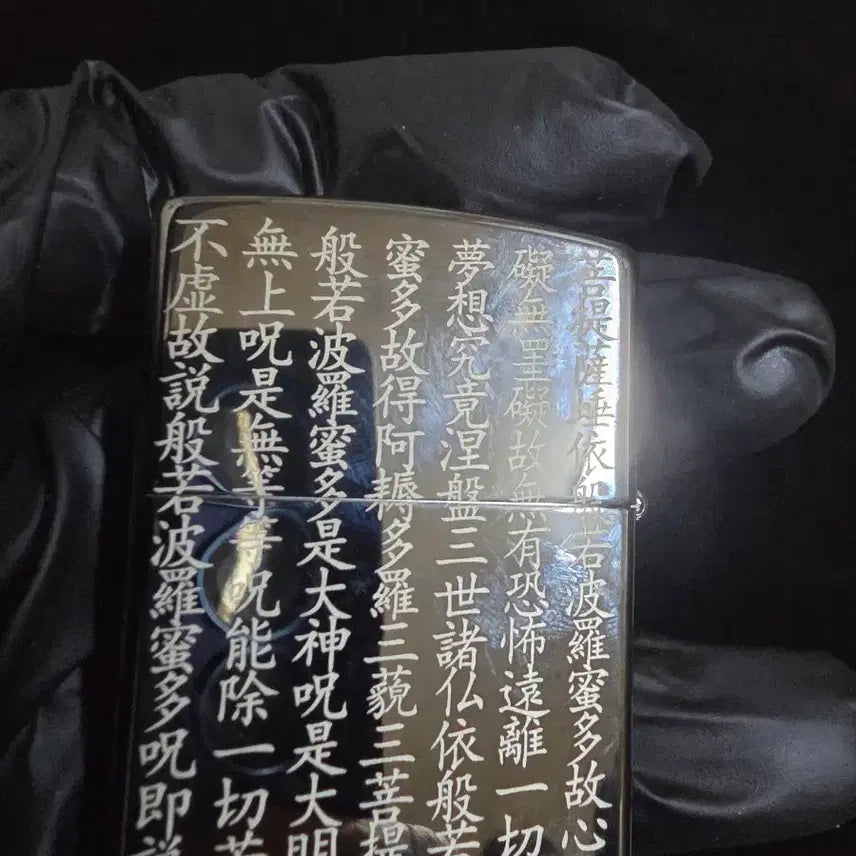 菩提薩埵依般若波羅蜜多故心
礙無罣礙故無有恐怖遠離一切
夢想究竟涅盤三世諸仏依般若
蜜多故得阿耨多羅三藐三菩提
般若波羅蜜多是大神呪是大明
無上呪是無等等呪能除一切苦
不虚故説般若波羅蜜多呪即説